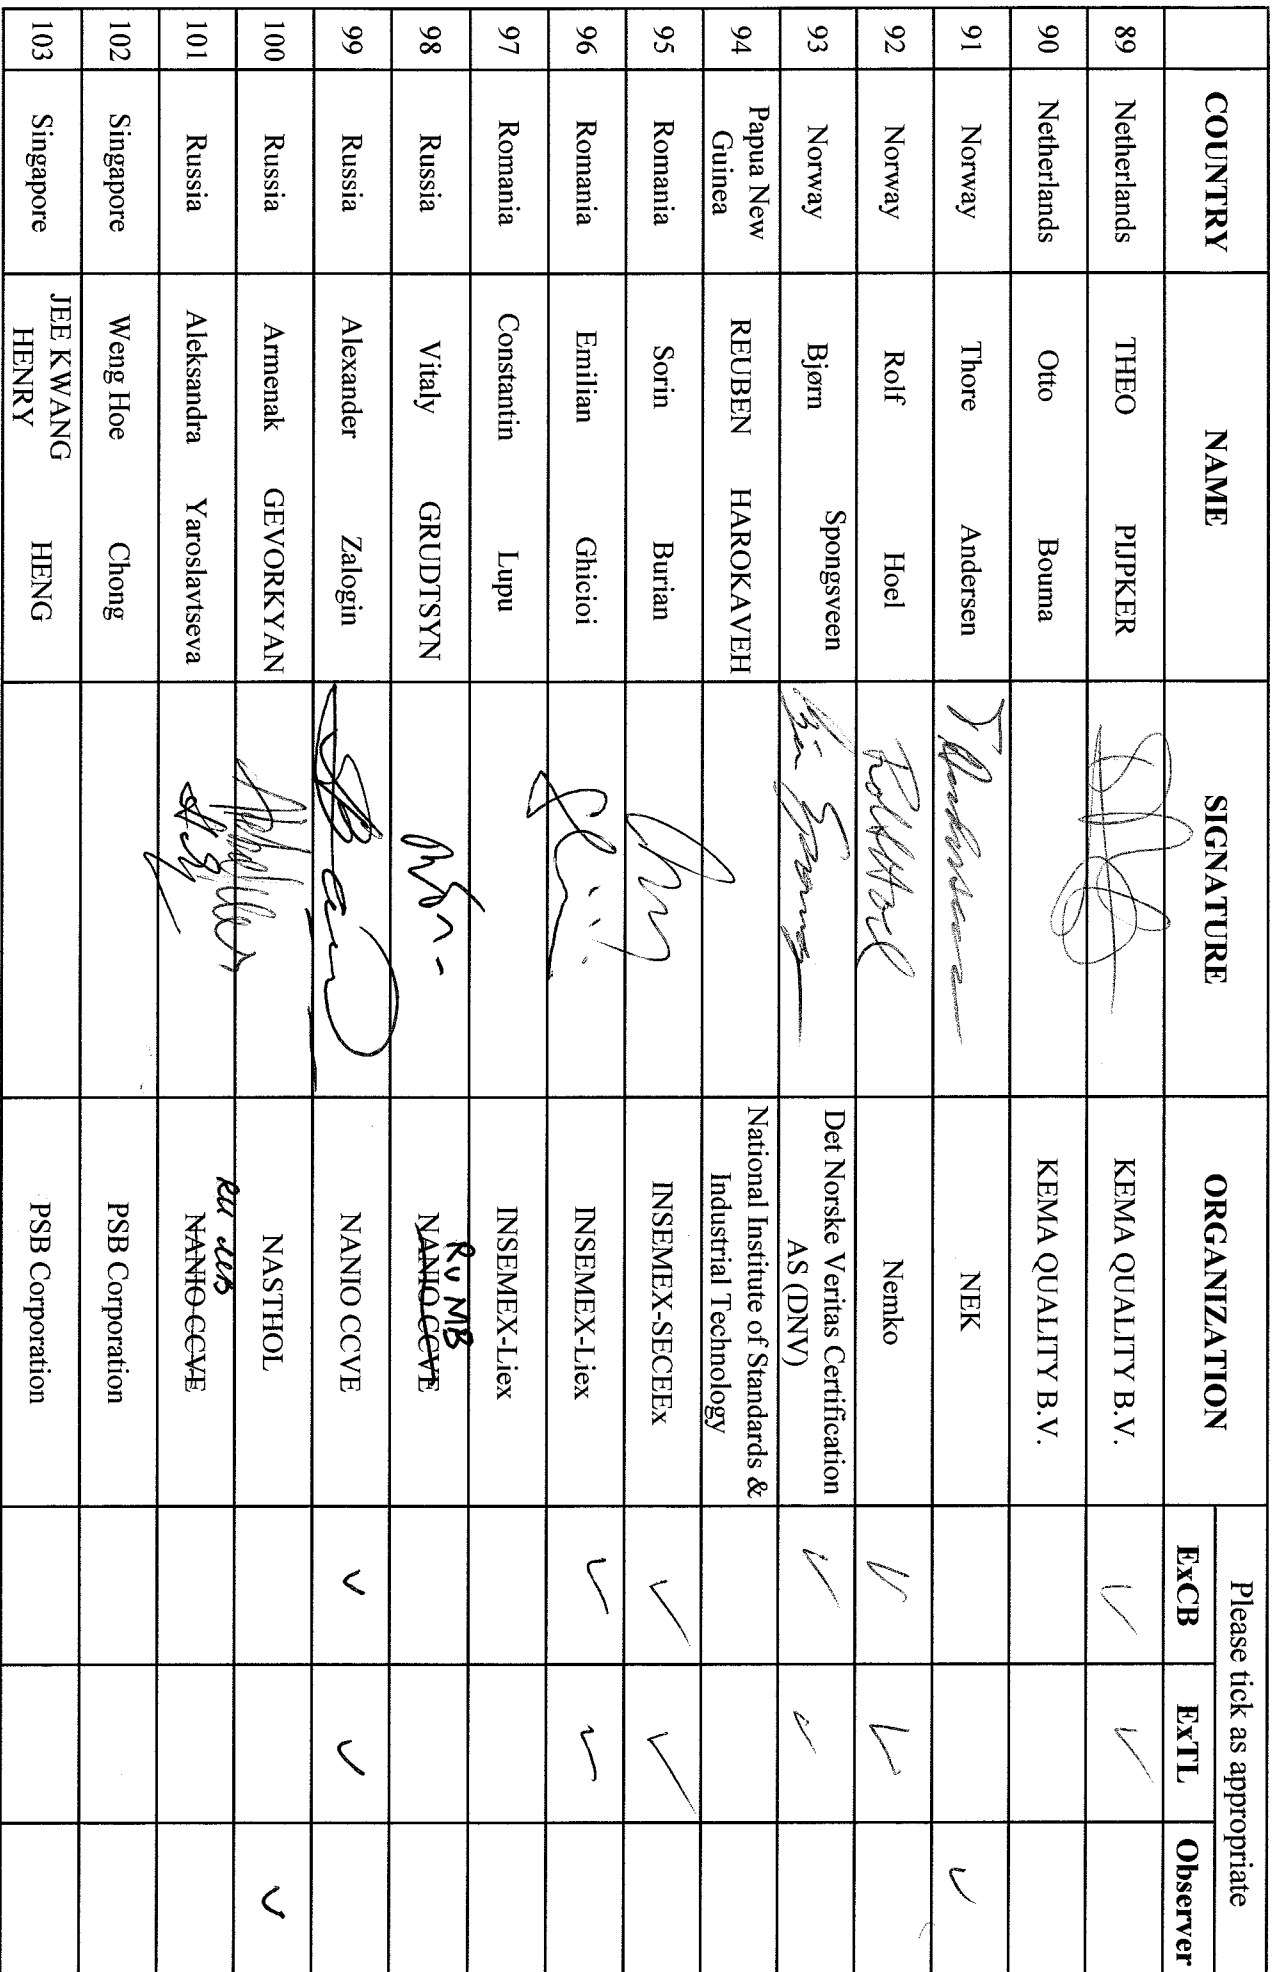 COUNTRY NAME SIGNATURE ORGANIZATION Please tick as appropriate
ExCB ExTL Observer
89 Netherlands THEO PIJPKER KEMA QUALITY B.V. ✓ ✓
90 Netherlands Otto Bouma KEMA QUALITY B.V.
91 Norway Thore Andersen NEK ✓
92 Norway Rolf Hoel Rolf Hoel Nemko ✓ ✓
93 Norway Bjørn Spongsveen Det Norske Veritas Certification
AS (DNV) ✓ ✓
94 Papua New
Guinea REUBEN HAROKAVEH National Institute of Standards &
Industrial Technology
95 Romania Sorin Burian INSEMEX-SECEEx ✓ ✓
96 Romania Emilian Ghicioi INSEMEX-Liex ✓ ✓
97 Romania Constantin Lupu INSEMEX-Liex
98 Russia Vitaly GRUDTSYN Ru MB
NANIO CCVE
99 Russia Alexander Zalogin NANIO CCVE ✓ ✓
100 Russia Armenak GEVORKYAN NASTHOL ✓
101 Russia Aleksandra Yaroslavtseva RU MB
NANIO CCVE
102 Singapore Weng Hoe Chong PSB Corporation
103 Singapore JEE KWANG
HENRY HENG PSB Corporation